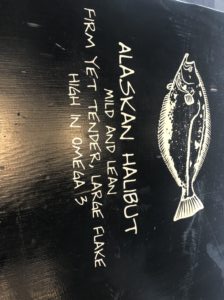 ALASKAN HALIBUT
MILD AND LEAN
FIRM YET TENDER, LARGE FLAKE
HIGH IN OMEGA 3